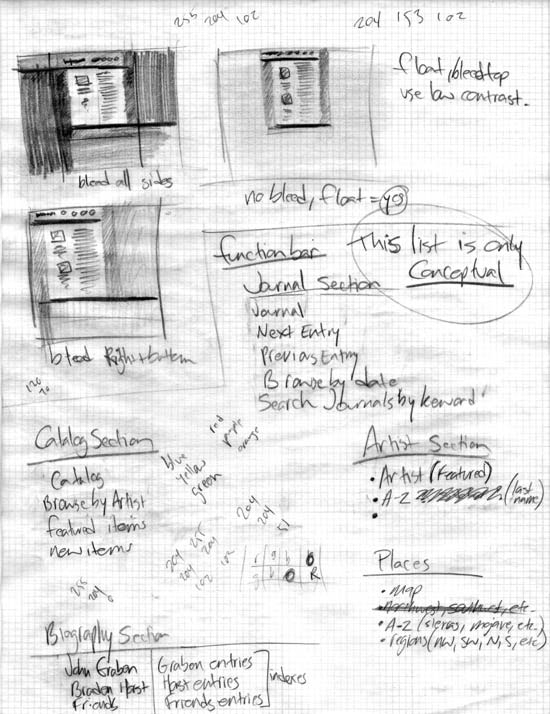 255 204 102
204 153 102
float, bleed top
use low contrast.
bleed all sides
no bleed, float = yes
function bar
This list is only
Conceptual
Journal Section
Journal
Next Entry
Previous Entry
Browse by date
Search Journals by keword
bleed Right + bottom
120
70
Catalog Section
Catalog
Browse by Artist
featured items
new items
red
purple
orange
blue
yellow
green
204
204
51
255
204
102
204
204
102
r g b
R
255
204
0
Artist Section
• Artist (featured)
• A-Z (last name)
•
Places
• map
• Northwest, southwest, etc.
• A-Z (sierras, mojave, etc.
• regions (NW, SW, N, S, etc)
Biography Section
John Grabon
Grabon entries
Braden Horst
Horst entries
Friends
Friends entries
indexes